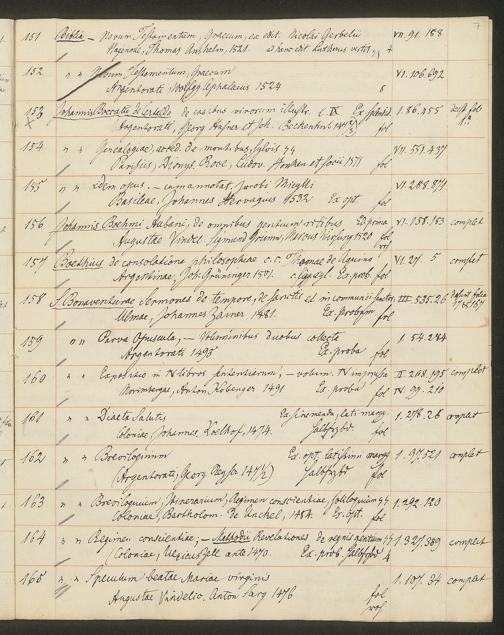 7
151 Biblia – Novum Testamentum, Graecum, ex edit. Nicolai Gerbelii VII. 91. 188
Hagenoae, Thomas Anshelm, 1521 4
152 " " Novum, Testamentum, Graecum VI. 106.692
Argentorati Wolffg. Cephalaeus 1524 8
153 Johannis Boccatii de Certaldo de casibus virorum illustr. l. IX 1.86.455 deest fol
Argentorati, Georg Husner et Joh. Beckenhub fol
154 " " Genealogiae, et de montibus, sylvis VII. 551.437
Parisiis, Dionys. Roce, Ludov. Hornken et socii 1511 fol
155 " " idem opus. – cum annotat. Jacobi Micylli VI.288.871
Basileae, Johannes Hervagius 1532 Ex opt. fol
156 Johannis Boehmi Aubani, de omnibus gentium ritibus Ex prima VI. 158.153 complet
Augustae Vindel. Sigmund Grimm, Marcus Wirsung 1520 fol
157 Boethius de consolatione philosophiae c. c. Thomae de Aquino VI.27. 5 complet
Argentinae, Joh. Grüninger 1501. Ex. prob. fol
158 S. Bonaventurae Sermones de tempore, de sanctis et in communi sanctor. III. 535.26 defunt folia
Ulmae, Johannes Zainer 1481. Ex. probum fol
159 " " Parva Opuscula, – Voluminibus duobus collecta 1. 54.284
Argentorati 1495 Ex. proba fol
160 " " Expositio in IV libros sententiarum, – volum. IV impressa II 268.195 complet
Norimbergae, Anton Koberger 1491 Ex. proba fol IV 29.210
161 " " Diaeta Salutis Ex. lati marg. 1. 278.26 complet
Coloniae, Johannes Koelhof, 1474. Halbfrzbd fol
162 " " Breviloquium Ex. opt. latissim marg 1. 97.521 complet
(Argentorati, Georg Reyser) Halbfrzbd fol
163 " " Breviloquium, Itinerarium, Regimen conscientiae, soliloquium 1.292.120
Coloniae, Bartholom. De Unckel, 1484. Ex. opt. fol
164 " " Regimen conscientiae; – Methodii Revelationes de regnis gentium 1.327.389 complet
(Coloniae, Ulricus Zell ante 1470. Ex. prob. Halbfrzbd 4
165 " " Speculum beatae Mariae virginis 1. 107. 34 complet
Augustae Vindelic. Anton Sorg 1476 fol